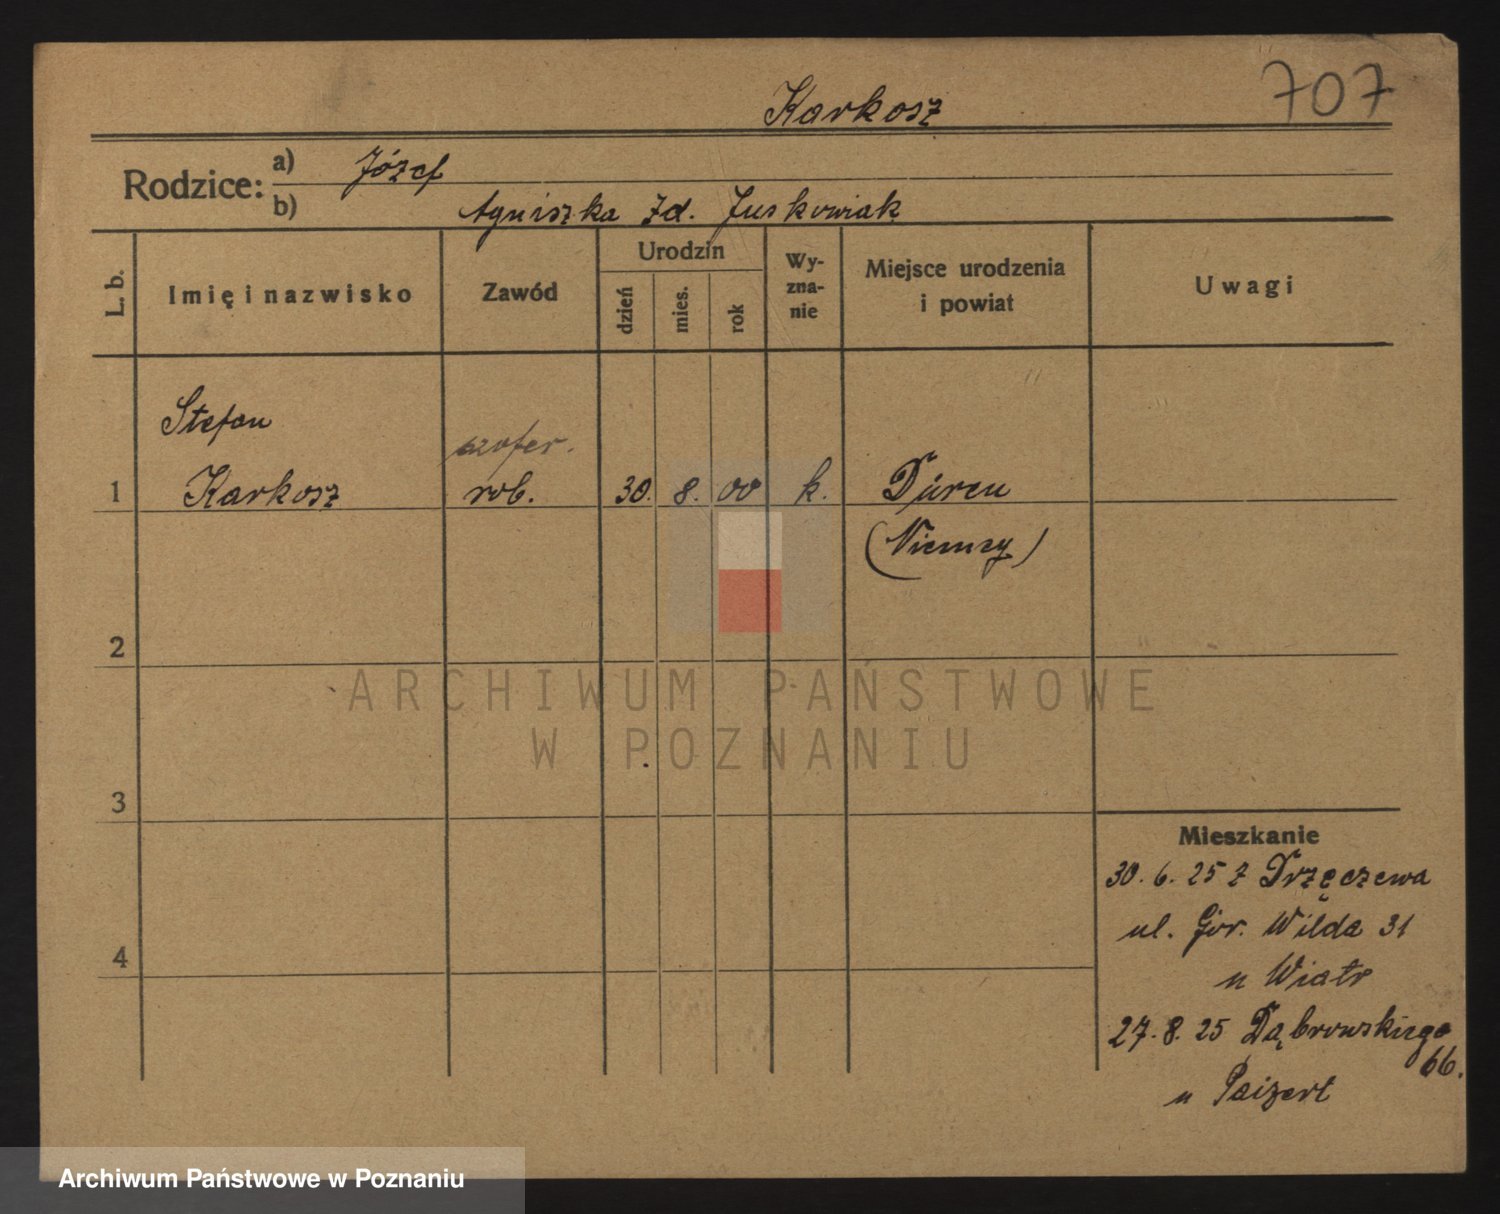 707
Karkosz
Rodzice: a) Józef
b) Agniszka zd. Juskowiak
L. b. Imię i nazwisko Zawód Urodzin dzień mies. rok Wy-zna-nie Miejsce urodzenia i powiat Uwagi
Stefan szofer.
1 Karkosz rob. 30. 8. 00 k. Düren
(Niemcy)
2
ARCHIWUM PAŃSTWOWE
W POZNANIU
3
Mieszkanie
30. 6. 25 z Drzęczewa
ul. Gór. Wilda 31
4
u Wiatr
27. 8. 25 Dąbrowskiego
66.
u Paizert
Archiwum Państwowe w Poznaniu